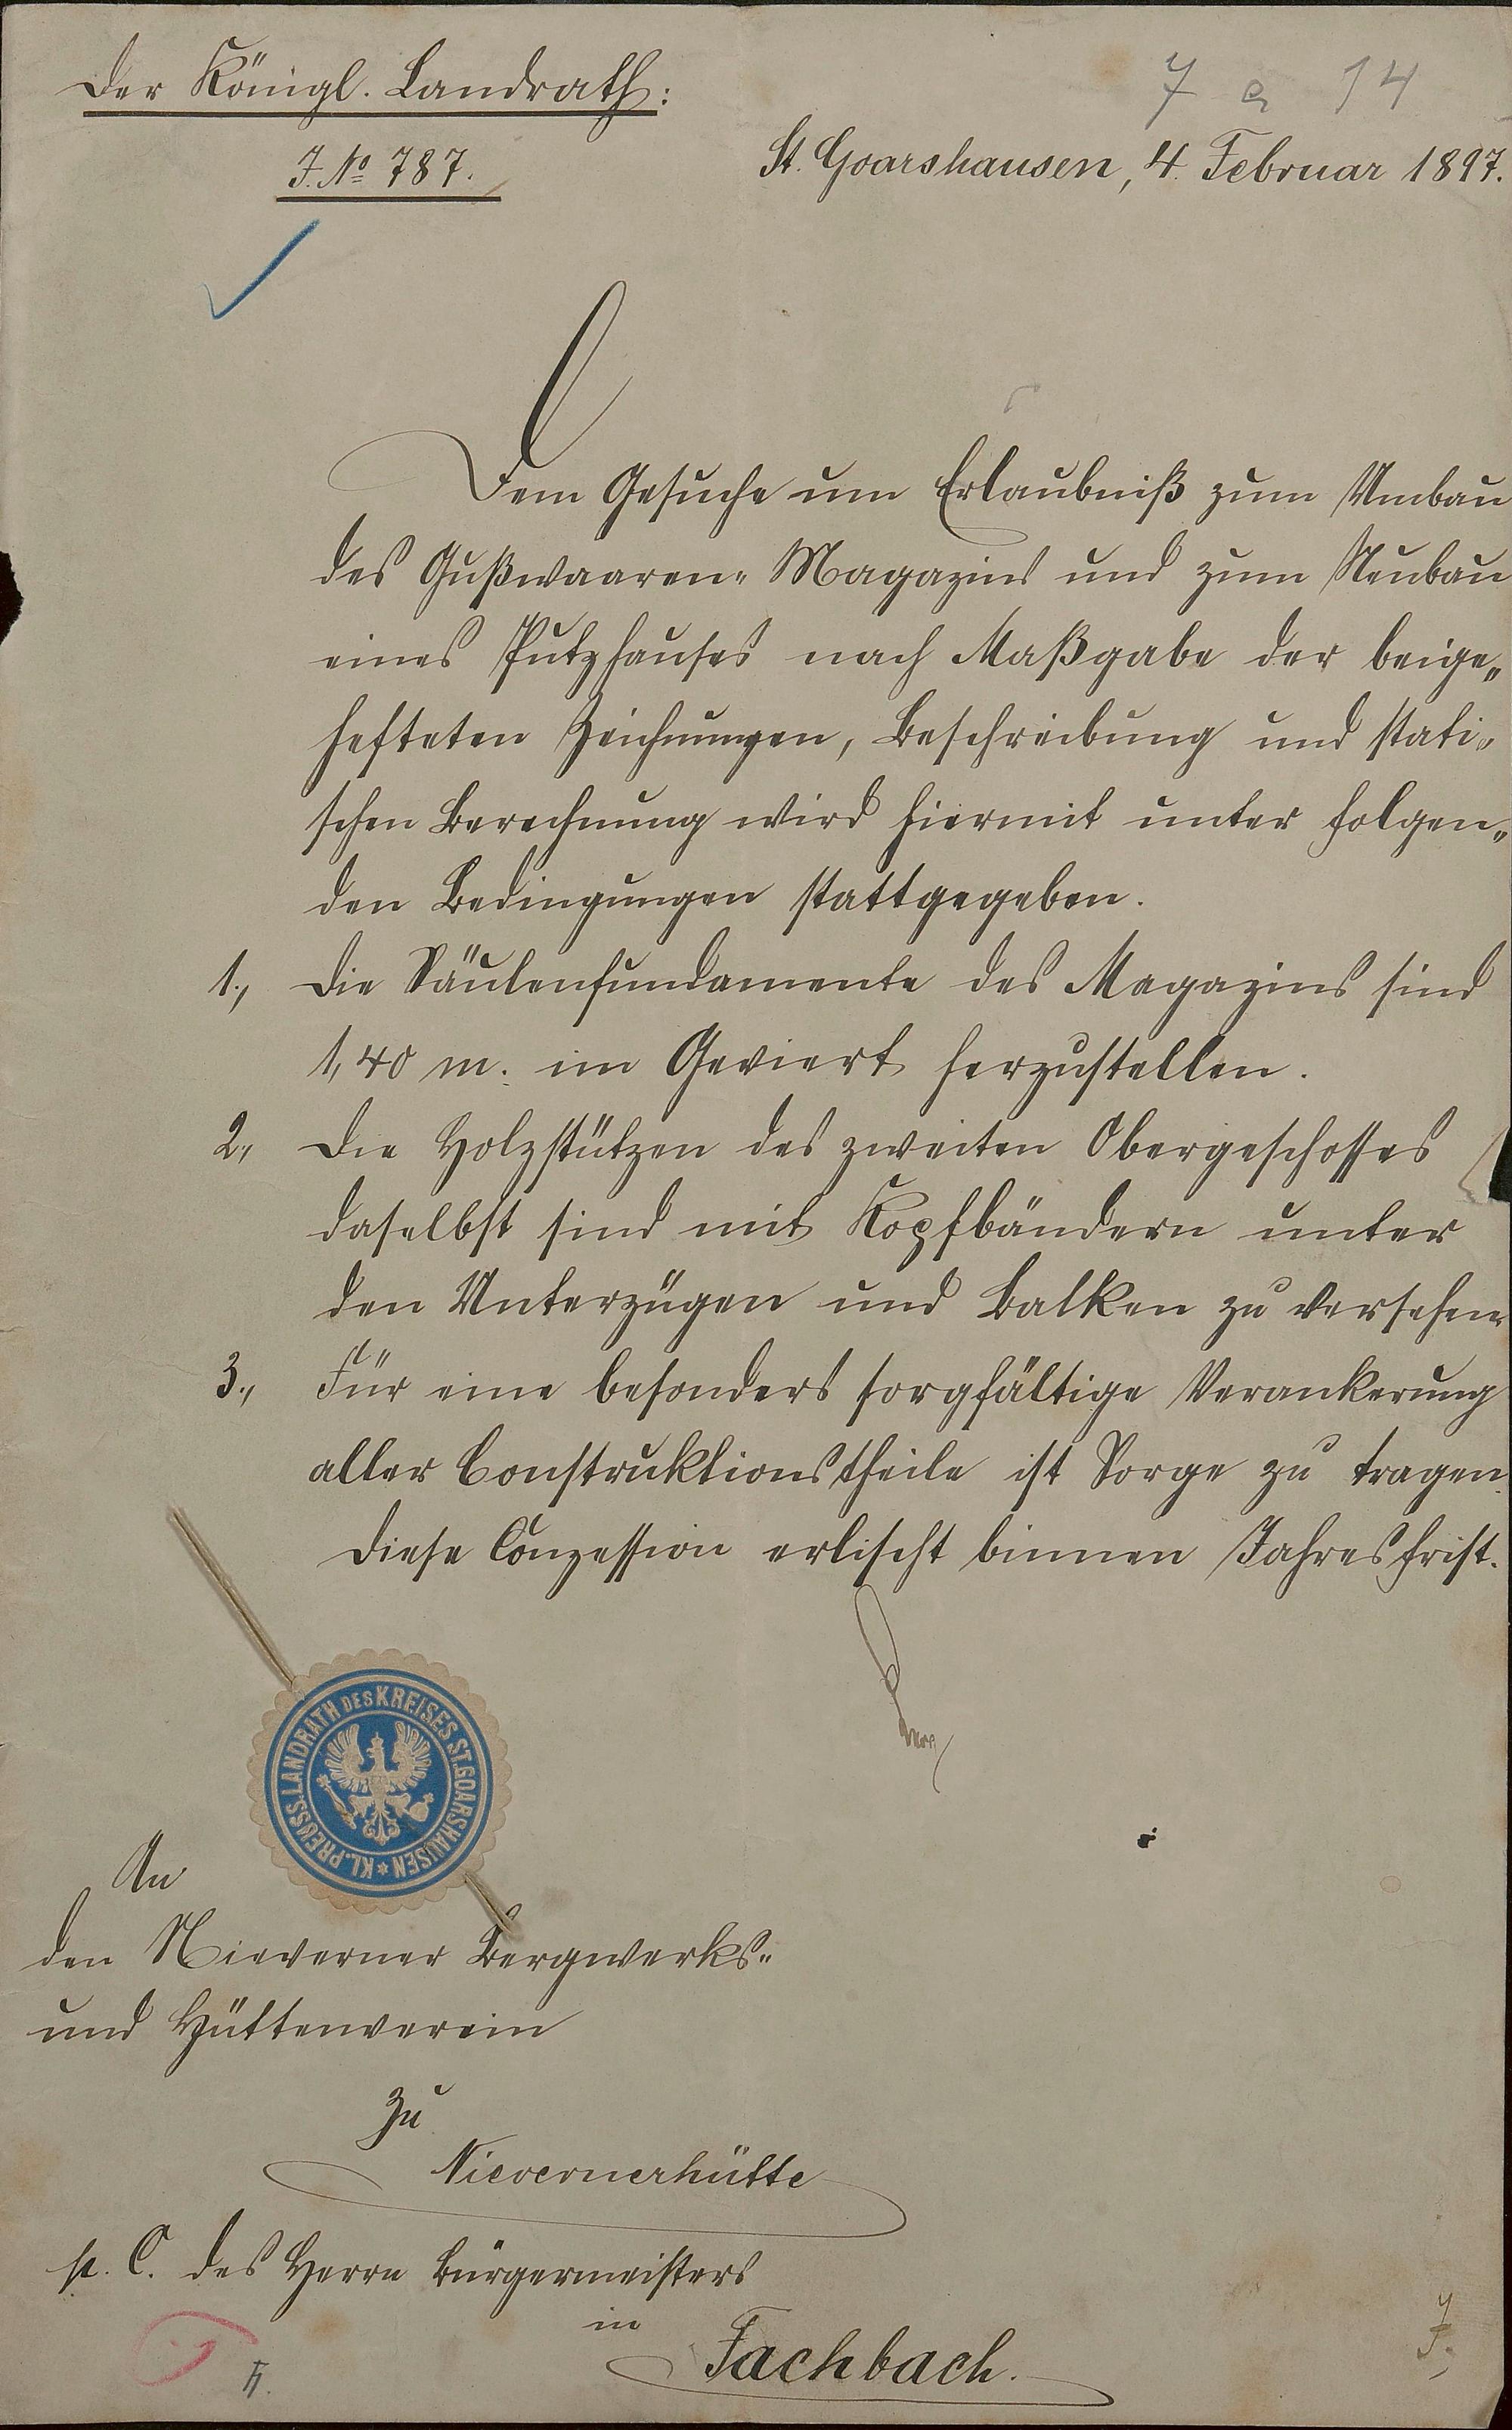 Der Königl. Landrath:
J. No 787.
7 a 14
St. Goarshausen, 4. Februar 1897.
Dem Gesuche um Erlaubniß zum Umbau
des Gußwaaren-Magazins und zum Neubau
eines Putzhauses nach Maßgabe der beige-
hefteten Zeichnungen, Beschreibung und stati-
schen Berechnung wird hiermit unter folgen-
den Bedingungen stattgegeben.
1., Die Säulenfundamente des Magazins sind
1,40 m. im Geviert herzustellen.
2., Die Holzstützen des zweiten Obergeschosses
daselbst sind mit Kopfbändern unter
den Unterzügen und Balken zu versehen
3., Für eine besonders sorgfältige Verankerung
aller Construktionstheile ist Sorge zu tragen.
Diese Conzession erlischt binnen Jahresfrist.
KL. PREUSS. LANDRATH DES KREISES ST. GOARSHAUSEN *
An
den Nieverner Bergwerks-
und Hüttenverein
zu
Nievernerhütte
p. C. des Herrn Bürgermeisters
in
Fachbach.